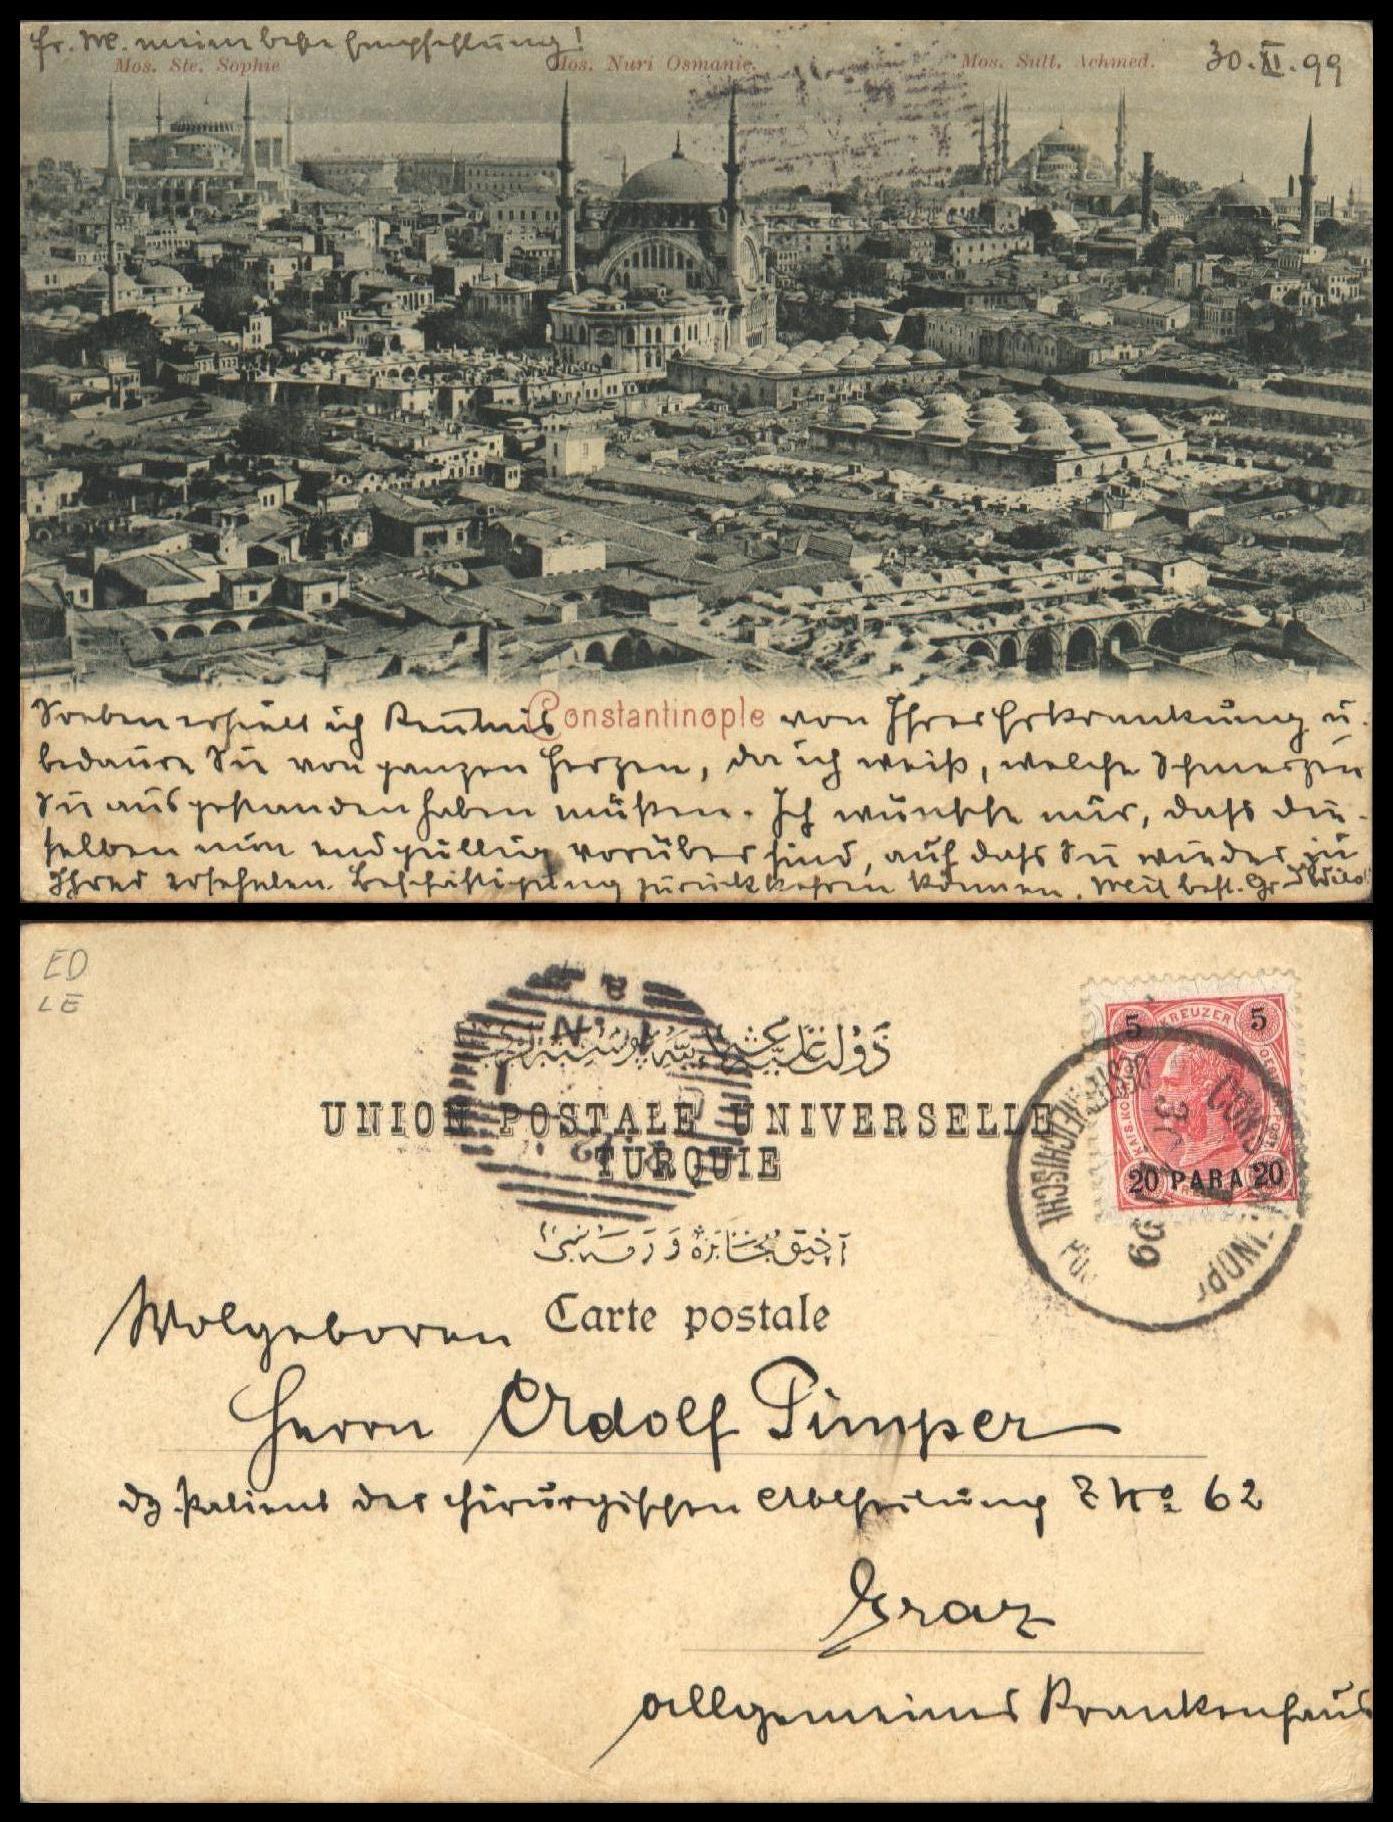 Fr. M. meine beste Empfehlung!
Mos. Ste. Sophie
Mos. Nuri Osmanie.
Mos. Sult. Achmed.
30.XI.99
Constantinople
Soeben erhielt ich Kentnis von Ihrer Erkrankung u.
bedaure Sie von ganzen Herzen, da ich weiß, welche Schmerzen
Sie ausgestanden haben müßen. Ich wünsche nur, dass die-
selben nun endgültig vorüber sind, auf dass Sie wieder zu
Ihrer ersehnten Beschäftigung zurückkehren können. Mit best. Gr
ED
LE
دولت علیه عثمانیه پوسته لری
UNION POSTALE UNIVERSELLE
TURQUIE
Carte postale
5 KREUZER 5
20 PARA 20
OESTERREICHISCHE
99
Wolgeboren
Herrn Adolf Pimper
dz. Patient der chirurgischen Abtheilung Z No 62
Graz
Allgemeines Krankenhaus